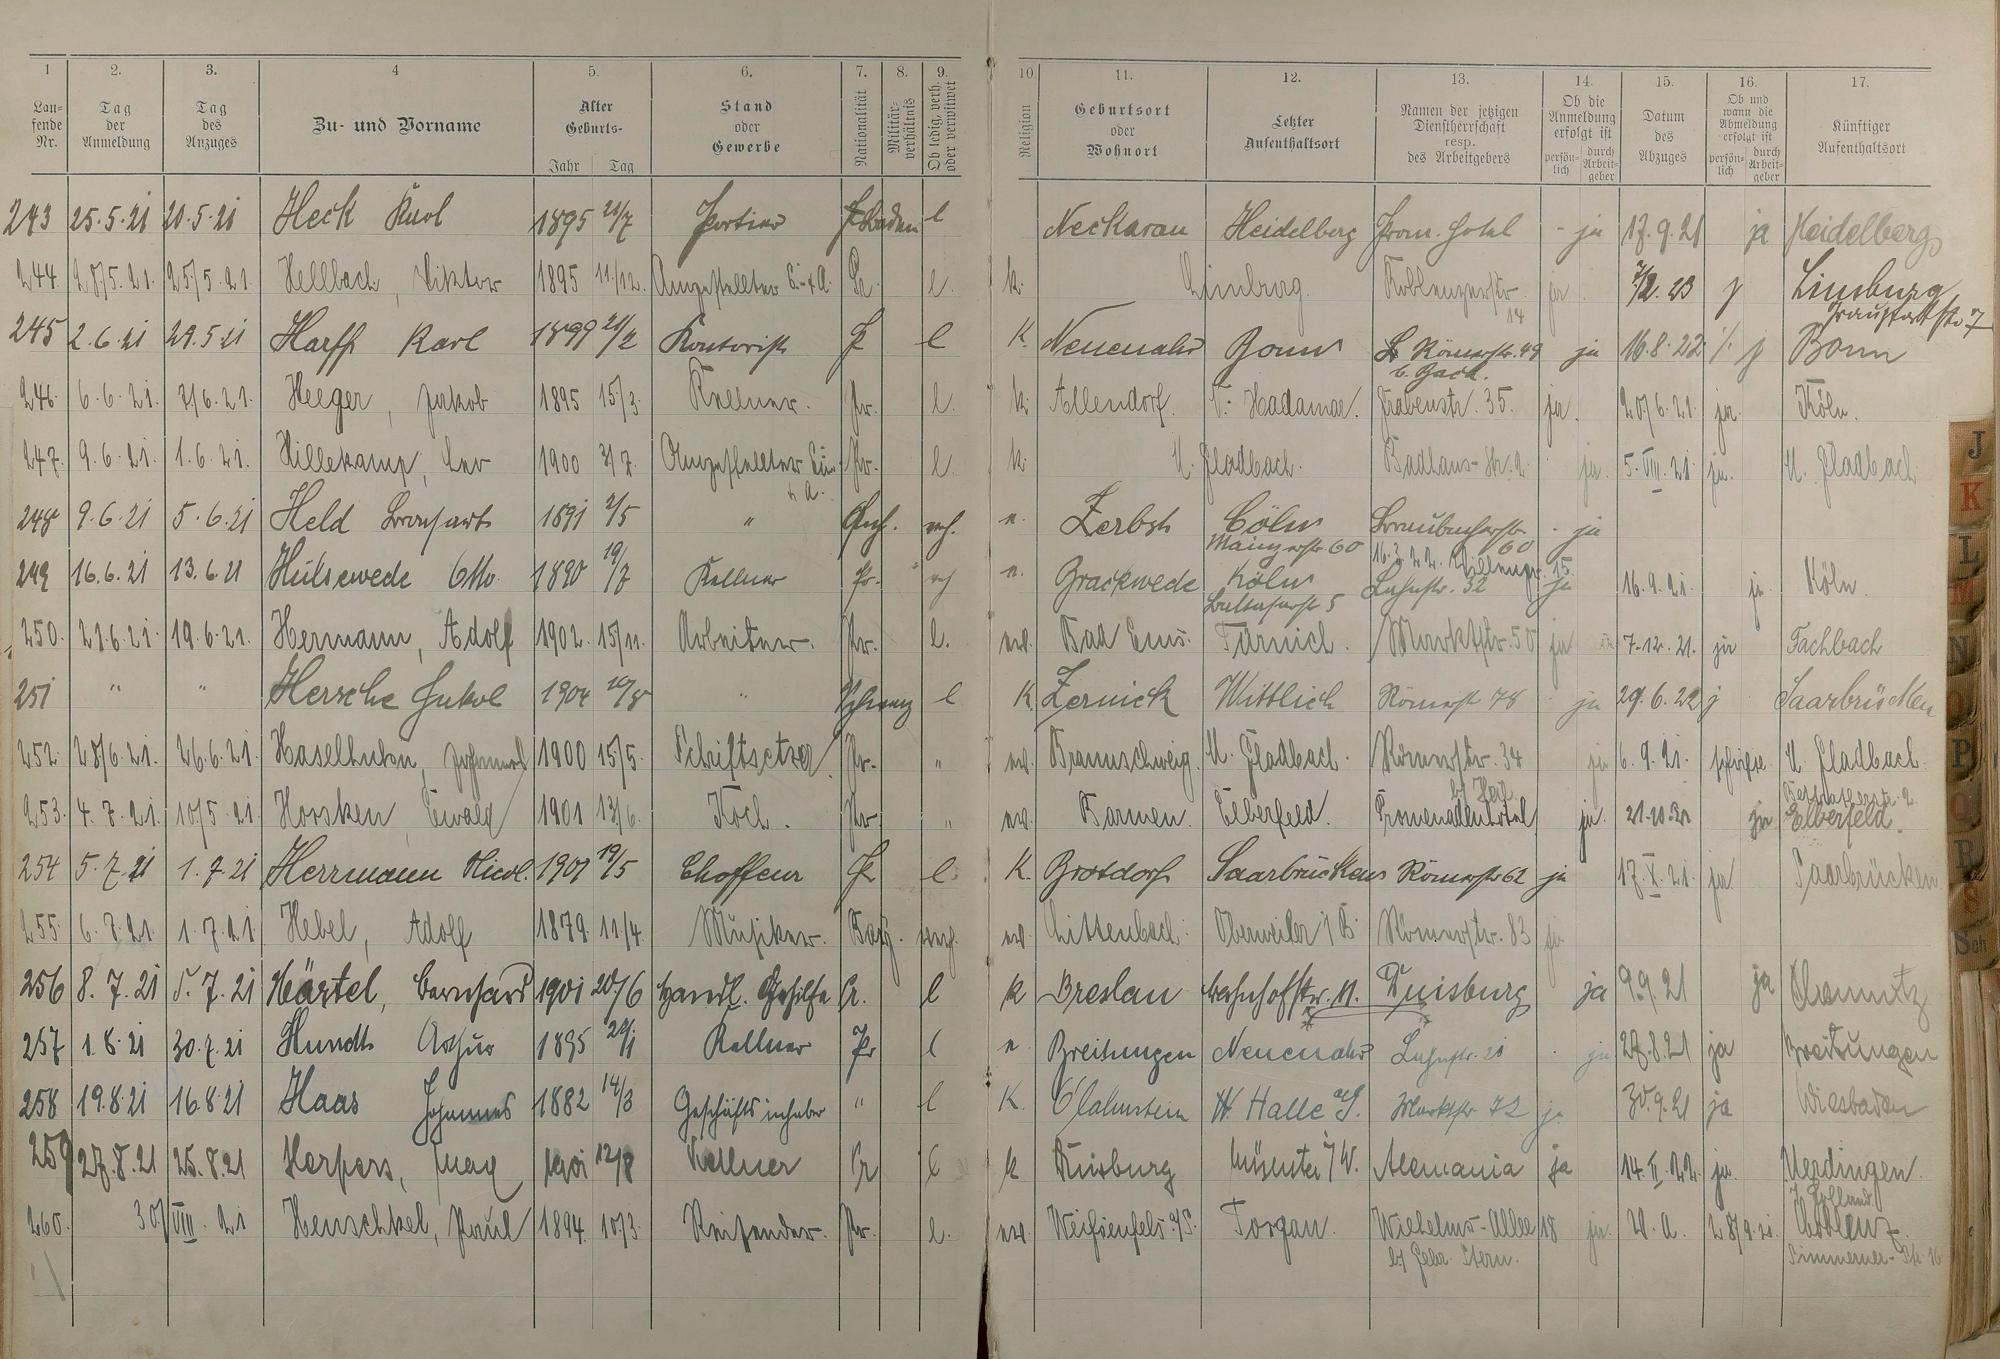 1 2. 3. 4 5. 6. 7. 8. 9. 10 11. 12. 13. 14. 15. 16. 17.
Lau- fende Nr. Tag der Anmeldung Tag des Anzuges Zu- und Vorname Alter Geburts- Jahr Tag Stand oder Gewerbe Nationalität Militär- verhältnis Ob ledig, verh. oder verwitwet Religion Geburtsort oder Wohnort Letzter Aufenthaltsort Namen der jetzigen Dienstherrschaft resp. des Arbeitgebers Ob die Anmeldung erfolgt ist persön- lich durch Arbeit- geber Datum des Abzuges Ob und wann die Abmeldung erfolgt ist persön- lich durch Arbeit- geber Künftiger Aufenthaltsort
243 25.5.21 20.5.21 Heck Karl 1895 21/7 Portier Baden l Neckarau Heidelberg Prom. Hotel - ja 17.9.21 ja Heidelberg
244. 28/5.21. 25/5.21. Hellbach, Viktor 1895 11/12. Angestellter E.-A. Pr. l. k. Limburg. Koblenzerstr. 14 ja. 23 j Limburg
245 2.6.21 29.5.21 Harff Karl 1899 21/2 Kontorist Pr l K. Neuenahr Bonn Römerstr. 49 ja 16.8.22 j Bonn
246. 6.6.21. 3/6.21. Heeger, Jakob 1895 15/3. Kellner. Pr. l. k. Allendorf. Hadamar. Grabenstr. 35. ja. 20/6.21. ja. Köln.
247. 9.6.21. 1.6.21. Hillekamp, Leo 1900 3/7. Angestellter Pr. l. k. M. Gladbach. Badhaus-Str. 2. ja. 5.VIII.21 ja. M. Gladbach
248 9.6.21 5.6.21 Held 1891 2/5 " Anh. vh. Zerbst Cöln Mainzerstr. 60 Braubacherstr. 60 - ja
249 16.6.21 13.6.21 Hülsewede Otto 1890 19/7 Kellner Pr. vh Brackwede Köln Balthasarstr 5 Lahnstr. 32 ja 16.9.21. ja Köln.
250. 21.6.21. 19.6.21. Hermann, Adolf 1902. 15/11. Arbeiter. Pr. l. ev. Bad Ems. Türnich. Marktstr. 50 ja 7.12.21. ja Fachbach
251 " " Hersche Jakob 1904 " Schweiz l K. Zernick Wittlich Römerstr 78 ja 29.6.22 j Saarbrücken
252. 28/6.21. 26.6.21. Haselhuhn, Johannes 1900 15/5. Schriftsetzer. Pr. " ev. Braunschweig. M. Gladbach. Römerstr. 34 ja 6.9.21. M. Gladbach.
253. 4.7.21. 10/5.21. Horsken, Ewald 1901 13/6. Koch. Pr " ev. Barmen. Elberfeld. Promenadenhotel ja. 21.10.21 ja Elberfeld.
254 5.7.21 1.7.21 Herrmann Nicol. 1901 19/5 Choffeur Pr l. K. Brotdorf Saarbrücken Römerstr 62 ja 17.X.21. ja Saarbrücken
255. 6.7.21. 1.7.21. Hebel, Adolf 1879. 11/4. Musiker. Bay. verh. ev. Oberweiler Römerstr. 83 ja
256 8.7.21 5.7.21 Härtel, Bernhard 1901 20/6 Handl. Gehilfe Pr. l k Breslau Bahnhofstr. 11. Duisburg ja 9.9.21 ja Chemnitz
257 1.8.21 30.7.21 Hundt Arthur 1895 Kellner Pr l Breitungen Neuenahr Lahnstr. 21 - ja 27.8.21 ja Breitungen
258 19.8.21 16.8.21 Haas Johannes 1882 14/3 Geschäftsinhaber " l K. O/Lahnstein Halle a/S. Marktstr 72 ja 30.9.21 ja Wiesbaden
259 27.8.21 25.8.21 Herpers, Max 1901 12/8 Kellner Pr l k Duisburg Münster i/W. Alemania ja 14.II.22. ja. Uerdingen.
260. 30/VIII.21 Henschkel, Paul 1894 10/3. Reisender. Pr. l. ev. Weißenfels a/S. Torgau. Wilhelms-Allee 18 ja. 28/9.21. Coblenz
bei Gebr. Stern. Simmerner-Str. 16
J K L M N O P Q R S Sch